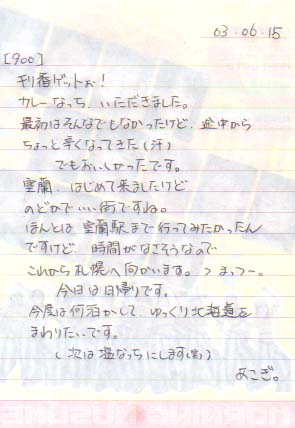 03.06.15
[900]
キリ番ゲットぉ!
カレーなっち、いただきました。
最初はそんなでもなかったけど、途中から
ちょっと辛くなってきた(汗)
でもおいしかったです。
室蘭、はじめて来ましたけど
のどかでいい街ですね。
ほんとは室蘭駅まで行ってみたかったん
ですけど、時間がなさそうなので
これから札幌へ向かいます。
今日は日帰りです。
今度は何泊かして、ゆっくり北海道を
まわりたいです。
(次は塩なっちにします(笑))
あこぎ。
MORNING MUSUME